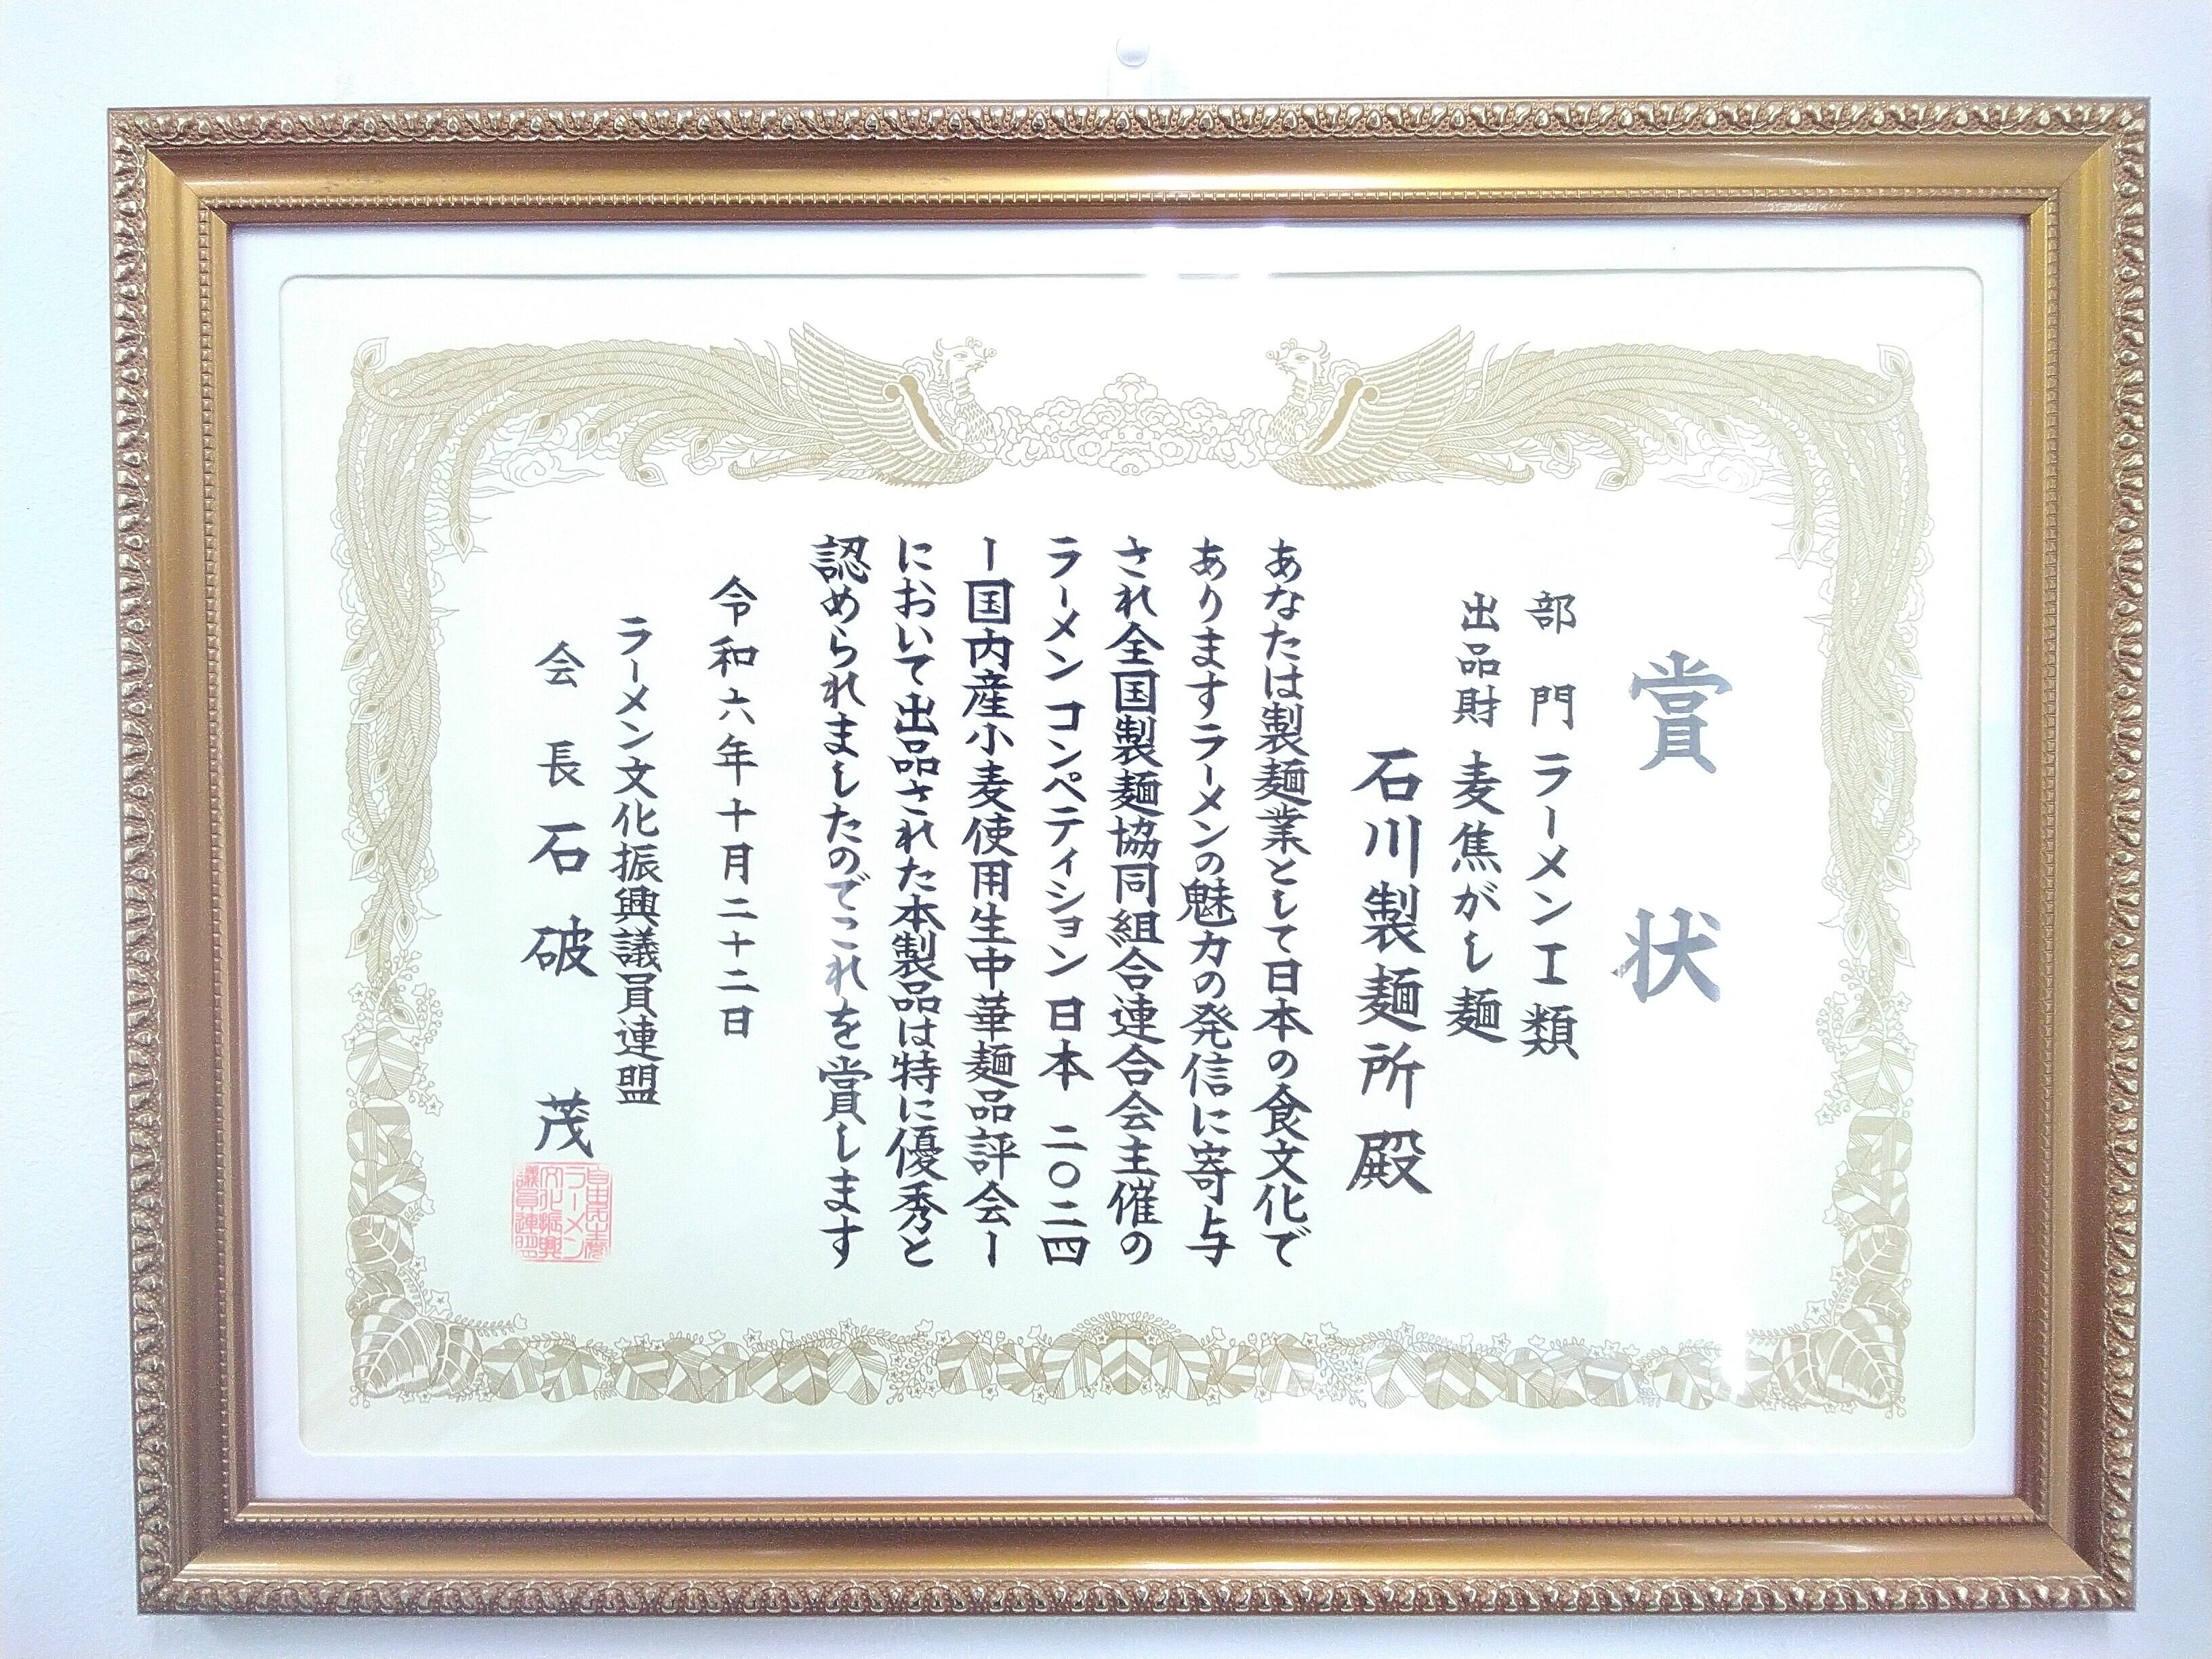 賞状
部門 ラーメンⅠ類
出品財 麦焦がし麺
石川製麺所 殿
あなたは製麺業として日本の食文化で
ありますラーメンの魅力の発信に寄与
され全国製麺協同組合連合会主催の
ラーメン コンペティション 日本 二〇二四
ー国内産小麦使用生中華麺品評会ー
において出品された本製品は特に優秀と
認められましたのでこれを賞します
令和六年十月二十二日
ラーメン文化振興議員連盟
会長 石破 茂
自由民主党
ラーメン
文化振興
議員連盟